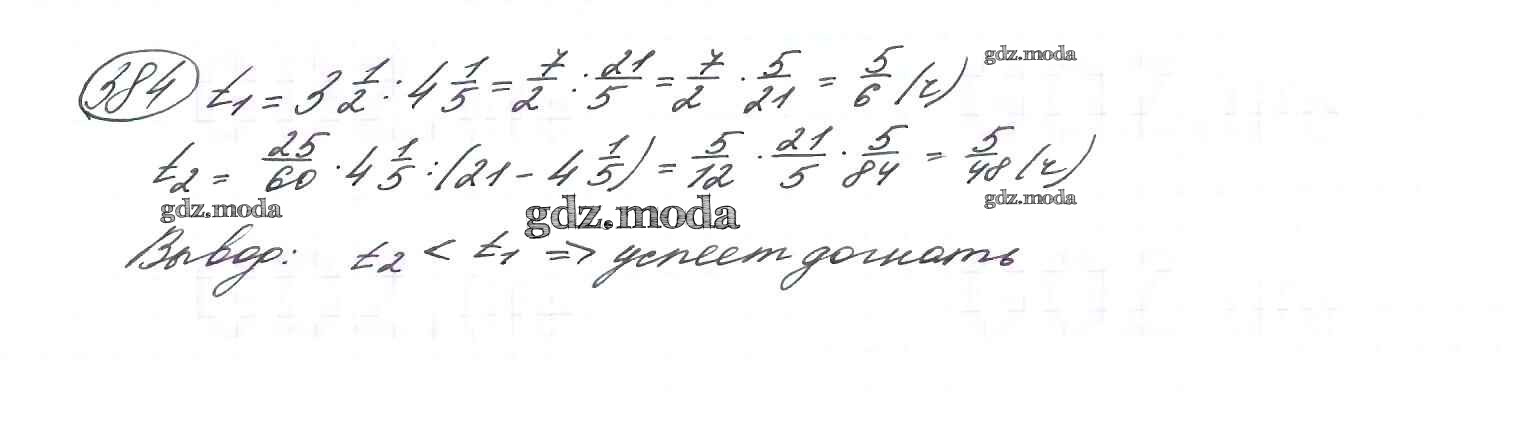 384 t₁ = 3 1/2 : 4 1/5 = 7/2 : 21/5 = 7/2 · 5/21 = 5/6 (ч) gdz.moda
t₂ = 25/60 · 4 1/5 : (21 - 4 1/5) = 5/12 · 21/5 · 5/84 = 5/48 (ч)
gdz.moda gdz.moda gdz.moda
Вывод: t₂ < t₁ => успеет догнать